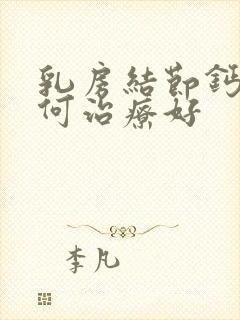 乳房結節鈣
何治療好
李凡